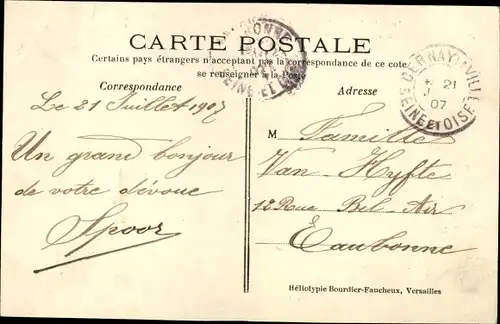 CARTE POSTALE
Certains pays étrangers n'acceptant pas la correspondance de ce coté
se renseigner à la Poste
Correspondance
Adresse
CERNAY LA VILLE
21
07
SEINE ET OISE
Le 21 Juillet 1907
Un grand bonjour
de votre dévoué
Spoor
M Famille
Van-Hyfte
12 Rue Bel-Air
Eaubonne
Héliotypie Bourdier-Faucheux, Versailles